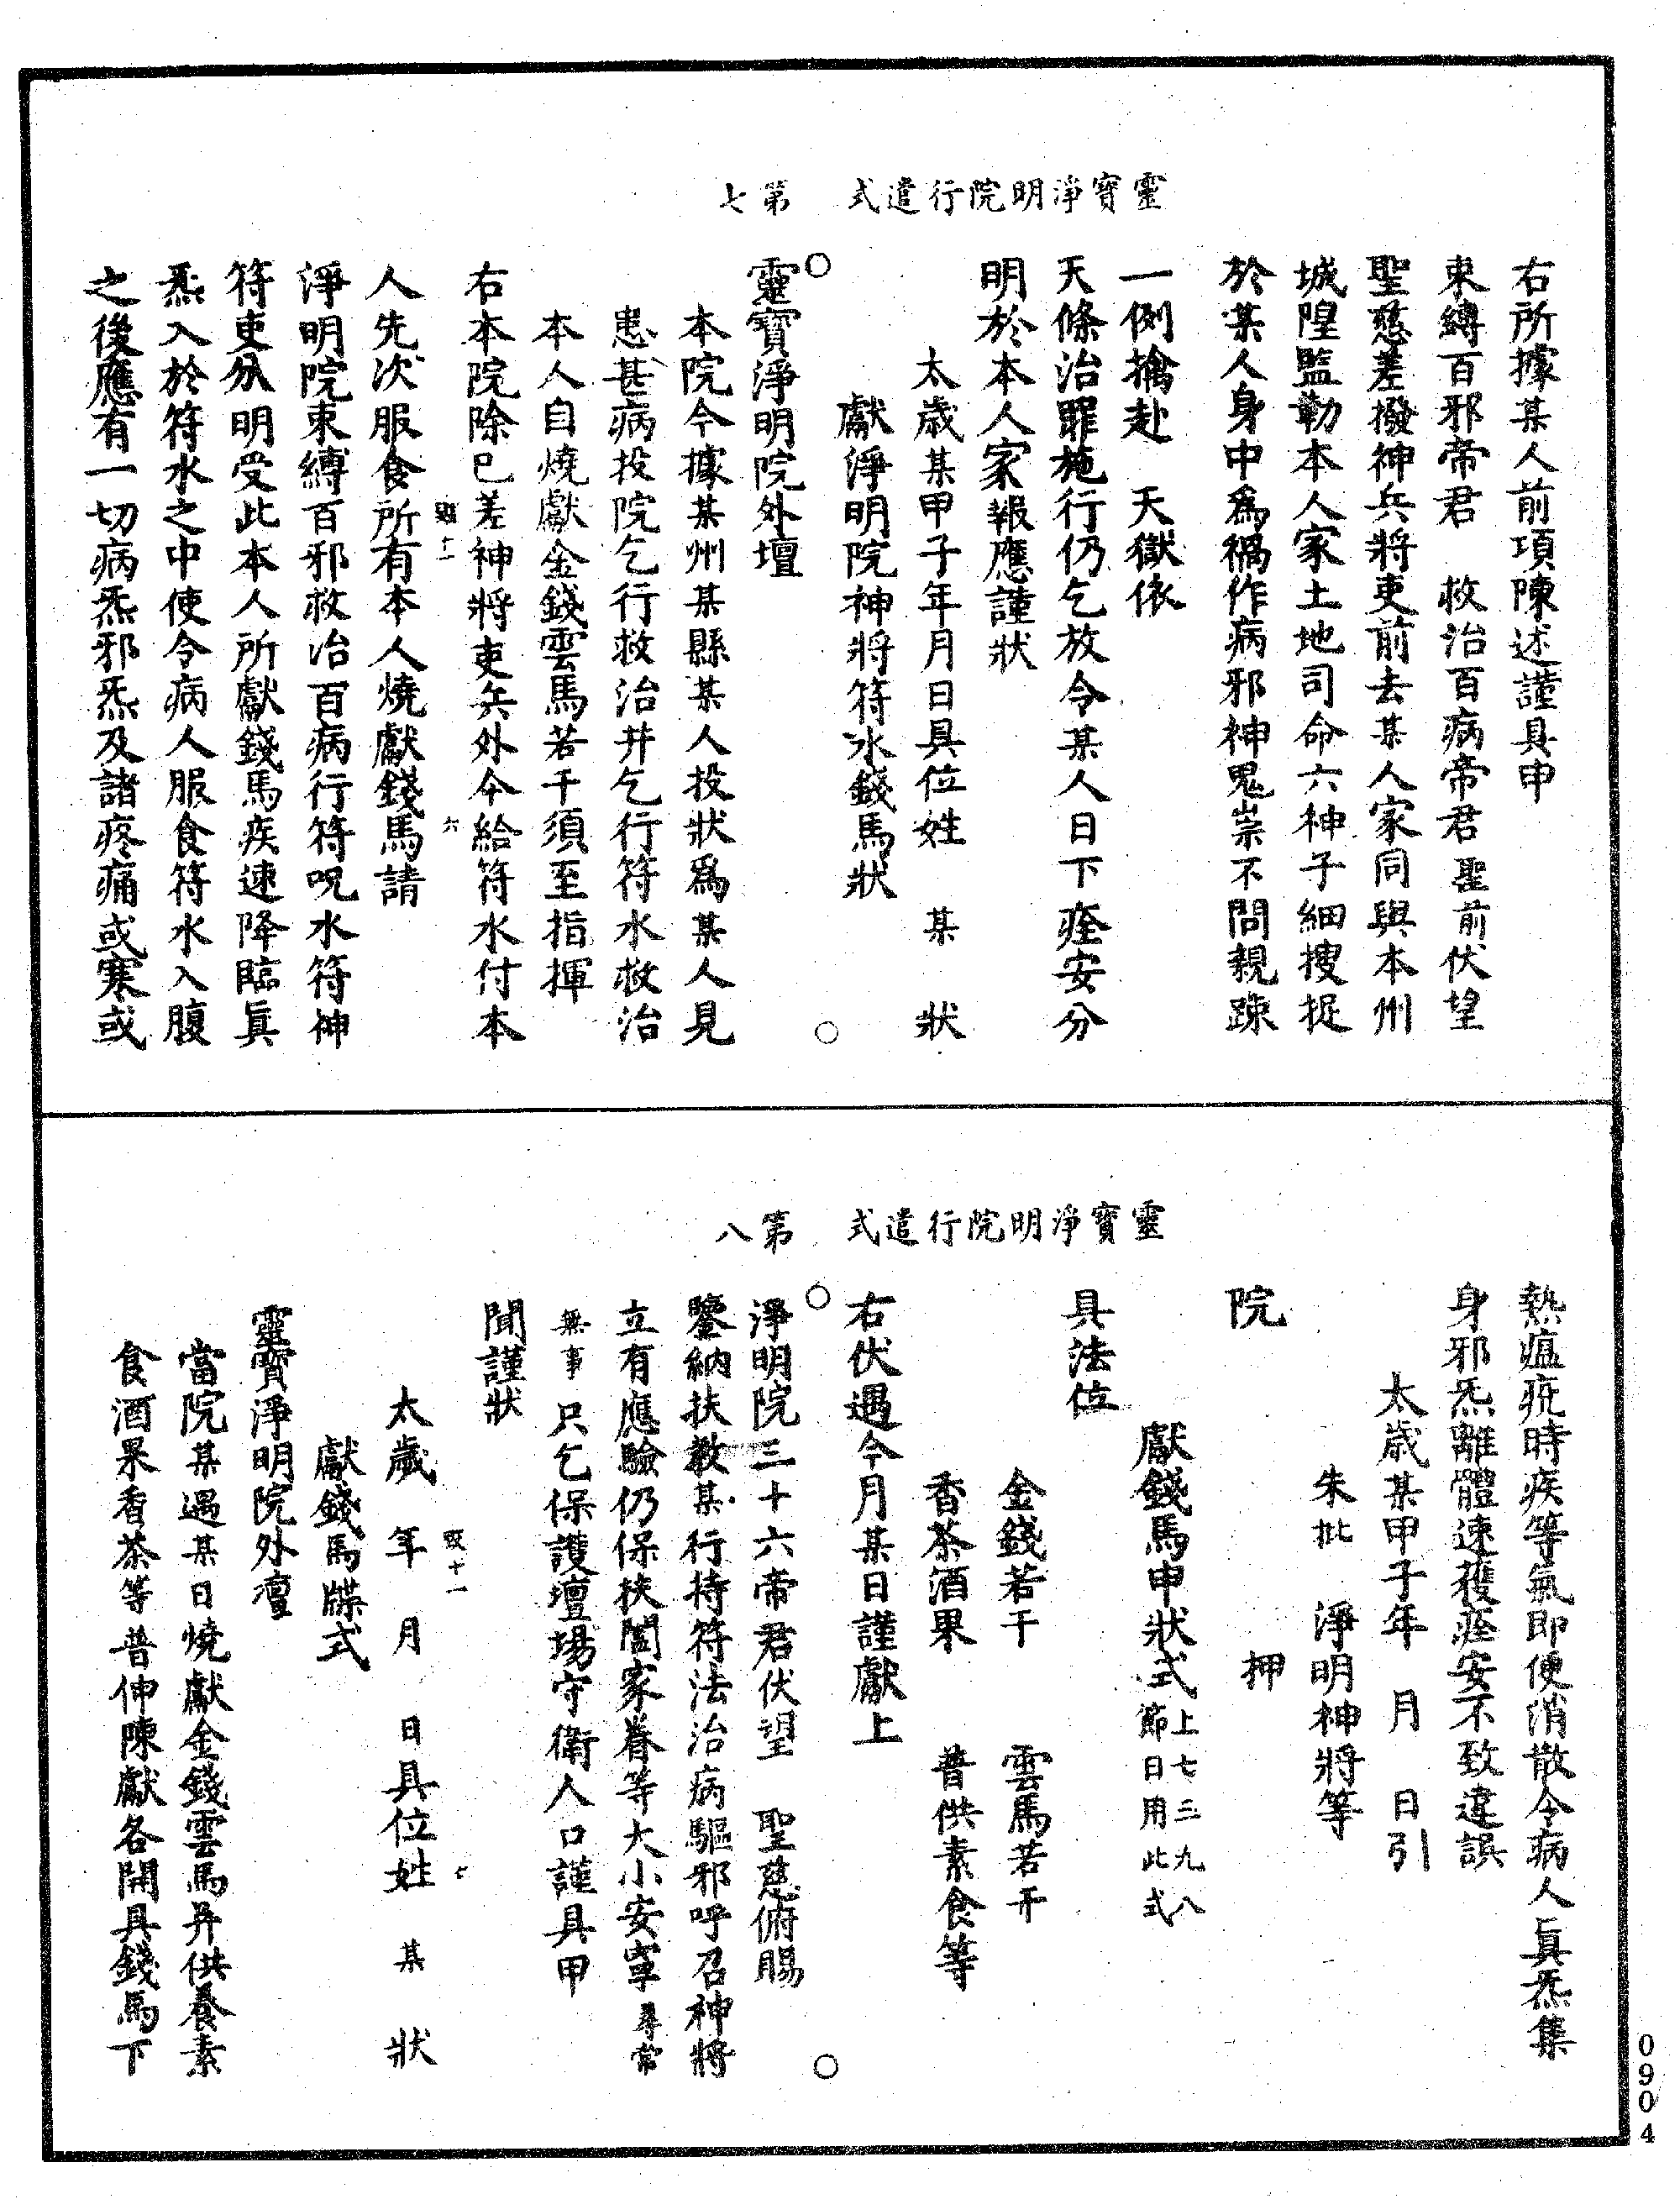 靈寶淨明院行遣式　第七
右所據某人前項陳述謹具申
束縛百邪帝君　救治百病帝君聖前伏望
聖慈差撥神兵將吏前去某人家同與本州
城隍監勒本人家土地司命六神子細搜捉
於某人身中為禍作病邪神鬼祟不問親疎
一例擒赴　天獄依
天條治罪施行仍乞放令某人日下痊安分
明於本人家報應謹狀
太歲某甲子年月日具位姓　某　狀
獻淨明院神將符水錢馬狀
靈寶淨明院外壇
本院今據某州某縣某人投狀為某人見
患甚病投院乞行救治并乞行符水救治
本人自燒獻金錢雲馬若干須至指揮
右本院除已差神將吏兵外今給符水付本
十一　六
人先次服食所有本人燒獻錢馬請
淨明院束縛百邪救治百病行符呪水符神
符吏分明受此本人所獻錢馬疾速降臨真
炁入於符水之中使令病人服食符水入腹
之後應有一切病炁邪炁及諸疼痛或寒或
靈寶淨明院行遣式　第八
熱瘟疫時疾等氣即便消散令病人真炁集
身邪炁離體速獲痊安不致違誤
太歲某甲子年　月　日引
朱批　淨明神將等
院　押
獻錢馬申狀式上七三九八節日用此式
具法位
金錢若干　雲馬若干
香茶酒果　普供素食等
右伏遇今月某日謹獻上
淨明院三十六帝君伏望　聖慈俯賜
鑒納扶教某行持符法治病驅邪呼召神將
立有應驗仍保扶闔家眷等大小安寧尋常
無事只乞保護壇場守衛人口謹具申
聞謹狀
十一　七
太歲　年　月　日具位姓　某　狀
獻錢馬牒式
靈寶淨明院外壇
當院某遇某日燒獻金錢雲馬并供養素
食酒果香茶等普伸陳獻各開具錢馬下
0904